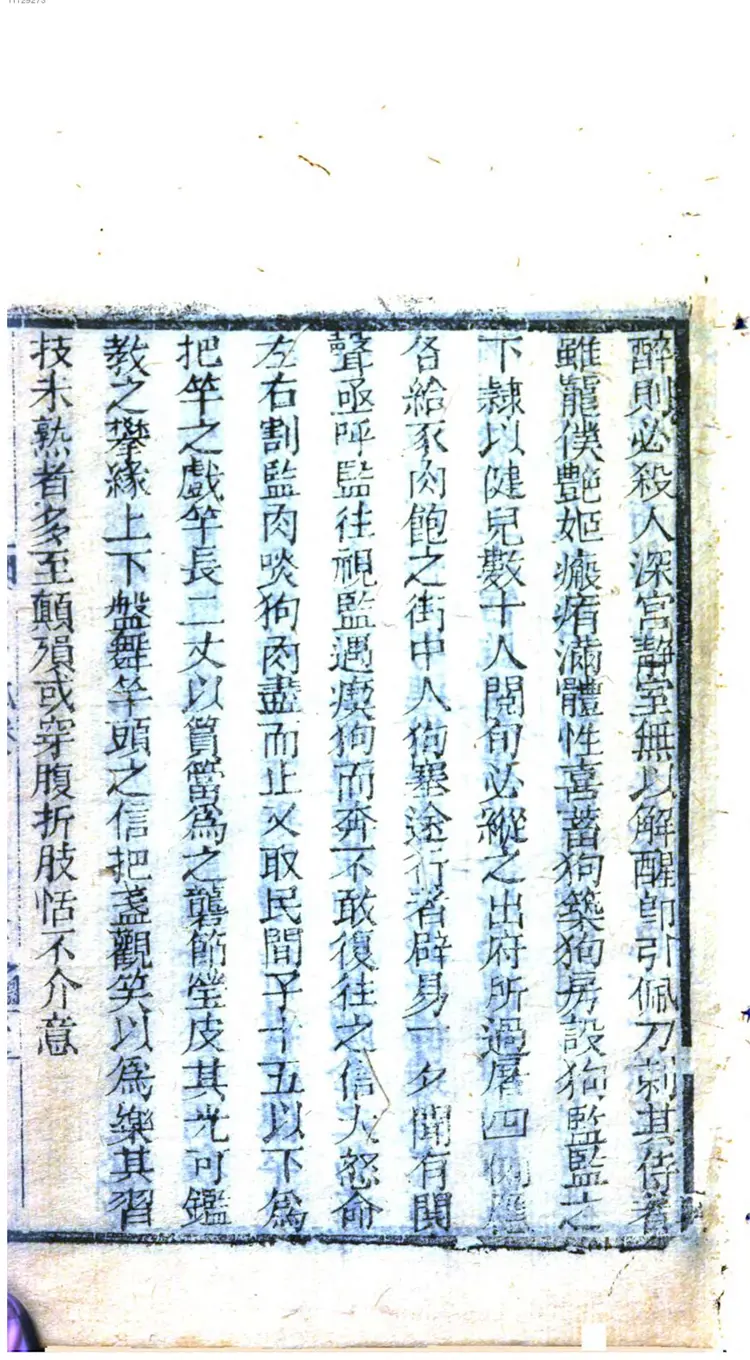 醉則必殺人深宮靜室無以解酲卽引佩刀刺其侍者
雖寵僕艷姬瘢痏滿體性喜蓄狗築狗房設狗監監之
下隸以健兒數十人閱旬必縱之出府所過屠四
各給豕肉飽之街中人狗塞途行者辟易一夕聞有鬭
聲亟呼監往視監遇瘈狗而奔不敢復往之信大怒命
左右割監肉啖狗肉盡而止又取民間子十五以下爲
把竿之戲竿長二丈以篔簹爲之礱節瑩皮其光可鑑
教之攀緣上下盤舞竿頭之信把盞觀笑以爲樂其習
技未熟者多至顚殞或穿腹折肢恬不介意